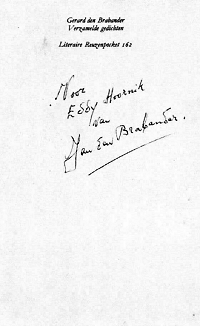 Gerard den Brabander
Verzamelde gedichten
Literaire Reuzenpocket 162
Voor
Eddy Hoornik
van
Jan den Brabander.